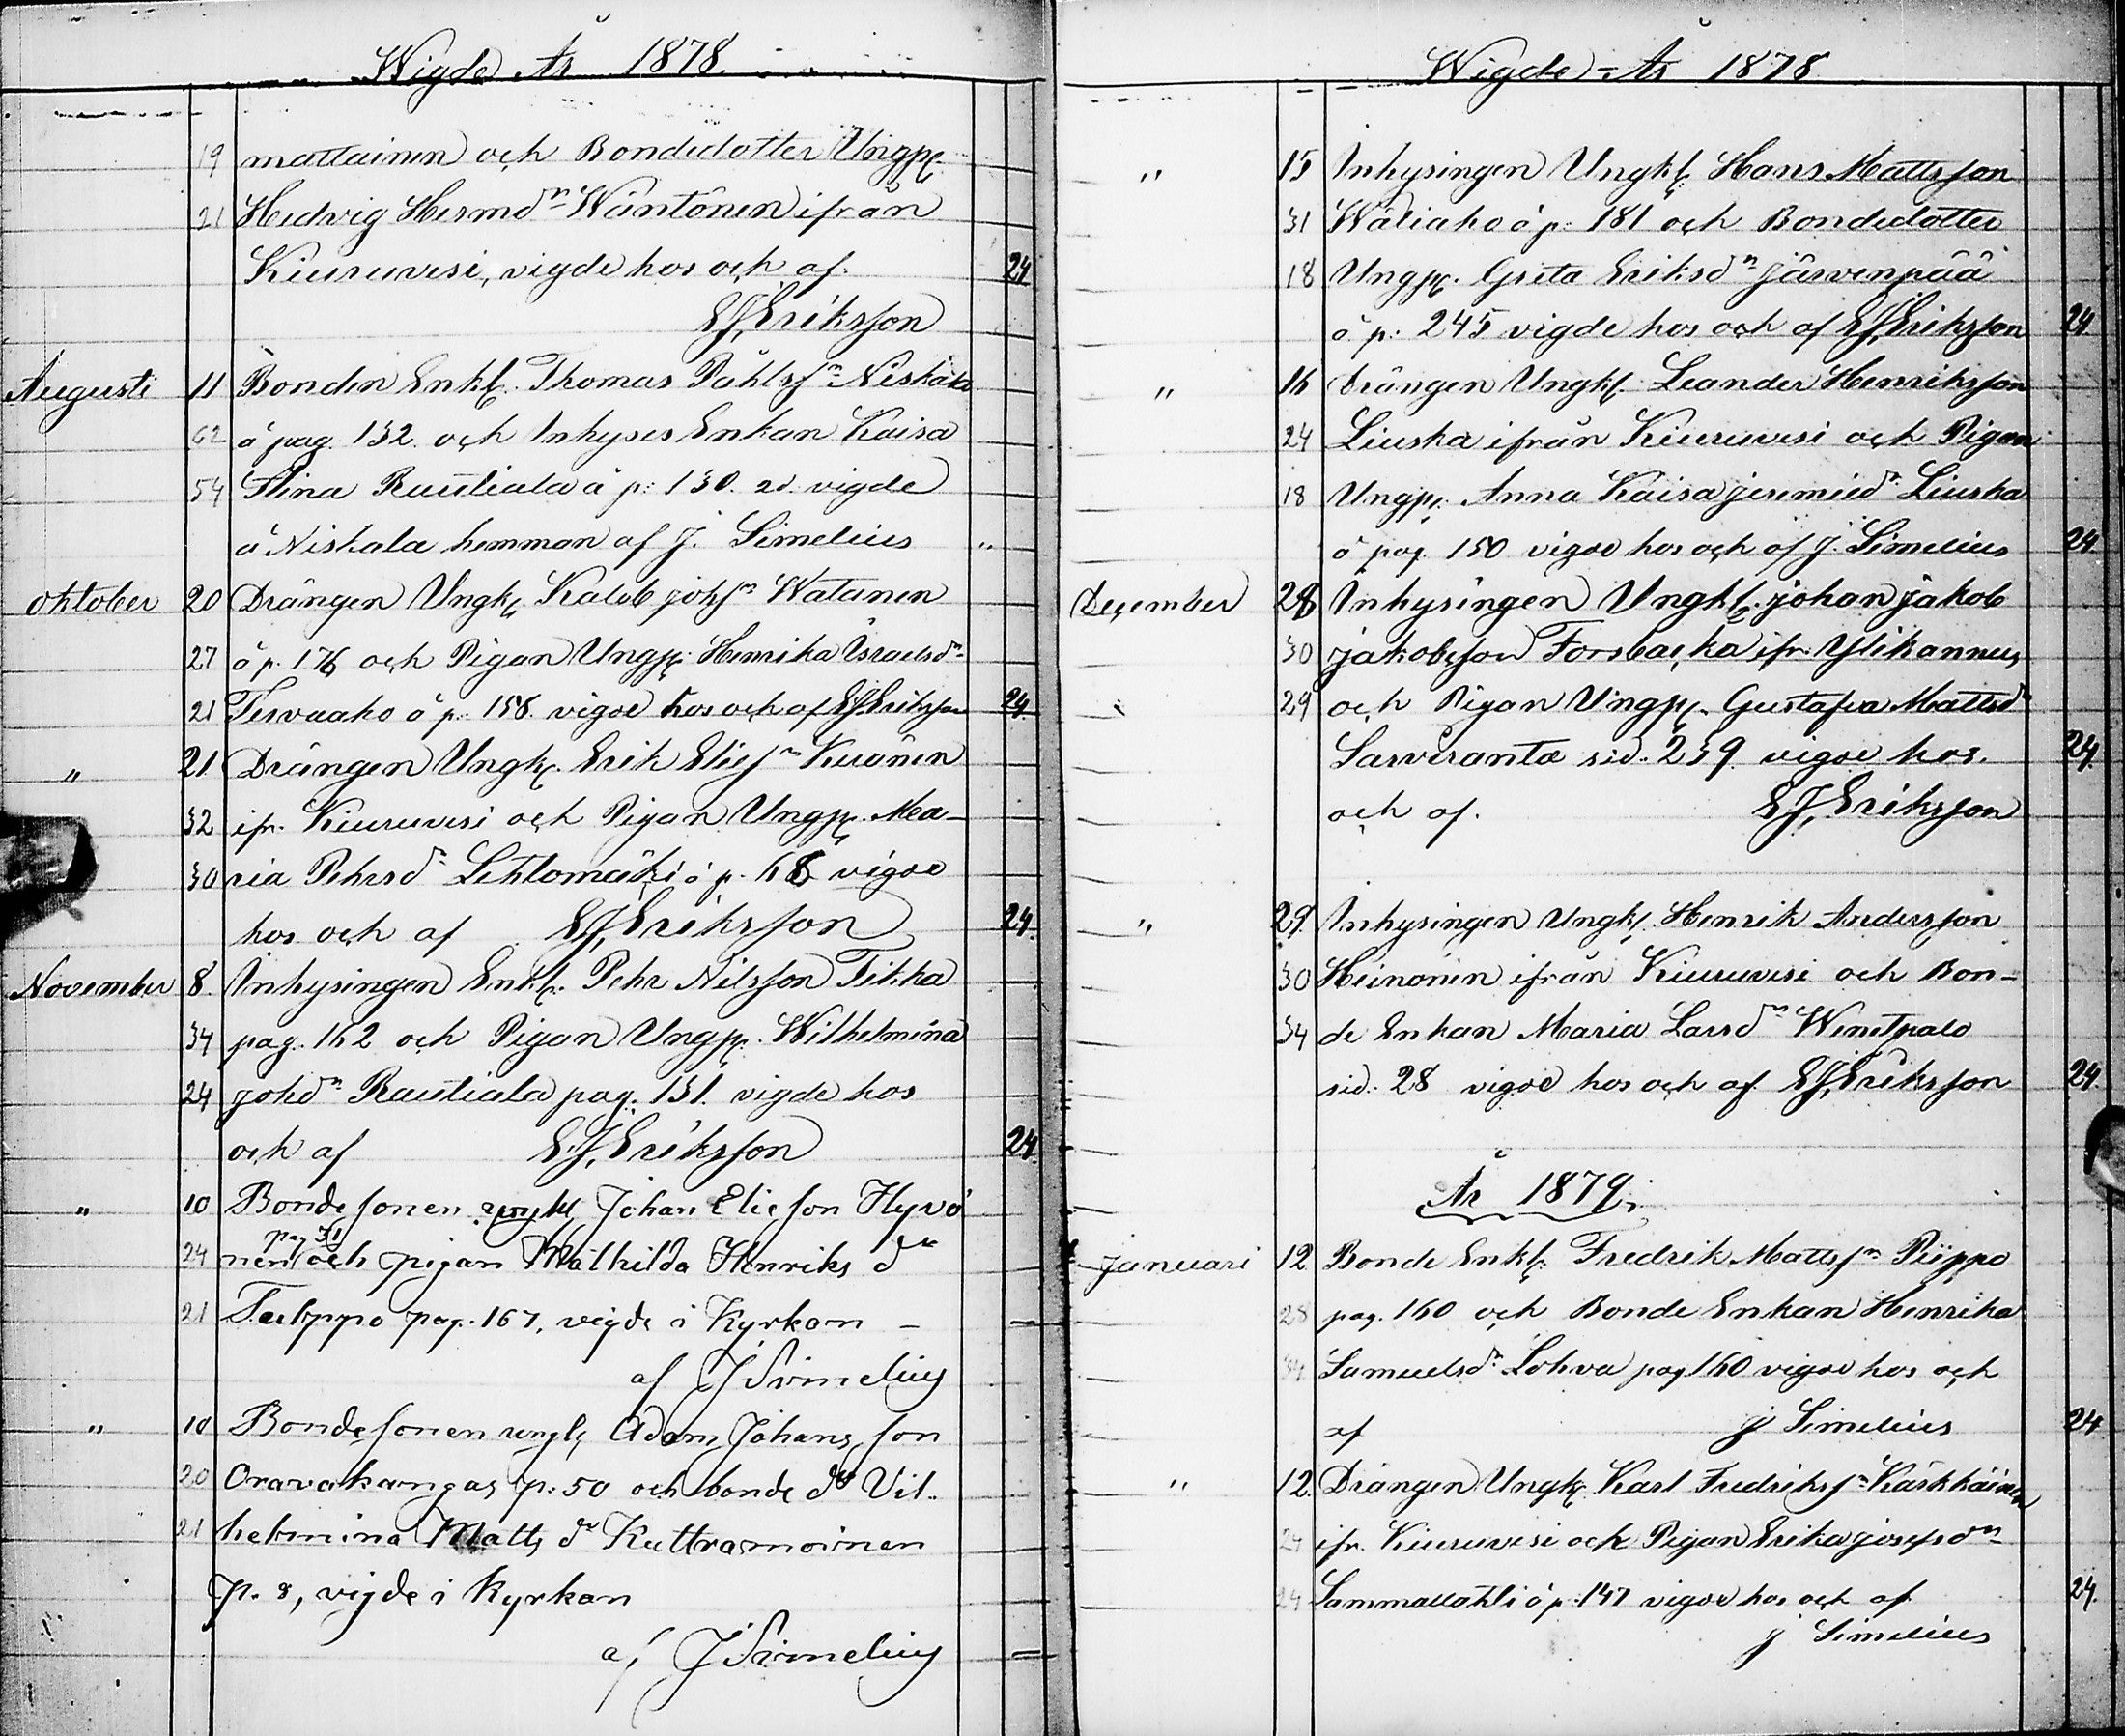 Wigde År 1878.
19 mattainen och Bondedotter Ungp.
21 Hedvig Hermdn Wäntönen ifrån
Kiuruvesi, vigde hos och af. 24
E J, Eriksson
Augusti 11 Bonden Enkl. Thomas Påhlsn Niskala
62 å pag. 132. och Inhyses Enkan Kaisa
54 Stina Rautiala å p: 130. vigde
å Niskala hemman af J. Simelius "
Oktober 20 Drängen Ungk. Kaleb Johsn Watanen
27 å p. 176 och Pigan Ungp. Henrika Israelsdn
21 Tervaaho å p: 158. vigde hos och af E J, Eriksson 24
" 21. Drängen Ungk. Erik Eliesn Kuronen
32 ifr. Kiuruvesi och Pigan Ungp. Ma-
30 ria Pehrsdn Lehtomäki å p. 68 vigde
hos och af E J, Eriksson 24.
November 8. Inhysingen Enkl. Pehr Nilsson Tikka
34 pag. 162 och Pigan Ungp. Wilhelmina
24 Johdn Rautiala pag. 131. vigde hos
och af E. J, Eriksson 24.
" 10 Bondesonen ungkl Johan Elieson Hyvö
pag 31
24 nen och pigan Mathilda Henriks dr
21 pag. 167, vigde i Kyrkan — —
af J Simelius
" 10 Bondesonen ungk Adam Johans son
20 Oravakangas p. 50 och bonde dr Vil-
21 helmina Matts dr Kuttramoinen
p. 8, vigde i Kyrkan
af J Simelius —
Wigde – År 1878
" 15 Inhysingen Ungkl. Hans Mattsson
31 Wäliaho å p: 181 och Bondedotter
18 Ungp. Greta Eriksdn Järvenpää
å p: 245 vigde hos och af E J, Eriksson 24.
" 16 Drängen Ungkl. Leander Henriksson
24 Liuska ifrån Kiuruvesi och Pigan
18 Ungp. Anna Kaisa Jeremiedn Liuska
å pag. 150 vigde hos och af J. Simelius 24
December 28 Inhysingen Ungkl. Johan Jakob
30 Jakobsson Forsbacka ifr. Ylikannus
29 och Pigan Ungp. Gustafva Mattsdn
Sarviranta sid. 239 vigde hos. 24.
och af. E J, Eriksson
" 29. Inhysingen Ungkl. Henrik Andersson
30 Heinonen ifrån Kiuruvesi och Bon-
34 de Enkan Maria Larsdn Wenetpalo
sid: 28 vigde hos och af E J, Eriksson 24.
År 1879.
Januari 12 Bonde Enkl. Fredrik Mattsn Piippo
28 pag. 160 och Bonde Enkan Henrika
34 Samuelsdn Lohva pag 160 vigde hos och
af J Simelius 24
" 12. Drängen Ungk. Karl Fredriksn Kärkkäinen
24 ifr. Kiuruvesi och Pigan Erika Josefsdn
24 Sammallahti å p: 147 vigde hos och af 24.
J Simelius